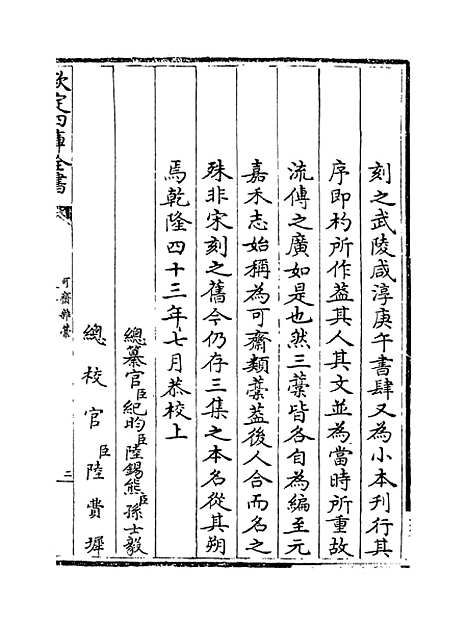 刻之武陵咸淳庚午書肆又為小本刊行其
序即杓所作葢其人其文並為當時所重故
流傳之廣如是也然三藁皆各自為編至元
嘉禾志始稱為可齋類藁葢後人合而名之
殊非宋刻之舊今仍存三集之本名從其朔
焉乾隆四十三年七月恭校上
總纂官臣紀昀臣陸錫熊臣孫士毅
總校官臣陸費墀
欽定四庫全書
可齋雜藁
二